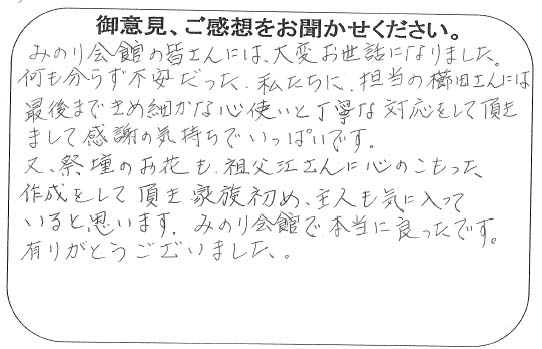 御意見、ご感想をお聞かせください。
みのり会館の皆さんには、大変お世話になりました。
何も分らず不安だった、私たちに、担当の櫛田さんには
最後まできめ細かな心使いと丁寧な対応をして頂き
まして感謝の気持ちでいっぱいです。
又、祭壇のお花も、祖父江さんに心のこもった、
作成をして頂き家族初め、主人も気に入って
いると思います。みのり会館で本当に良ったです。
有りがとうございました、。